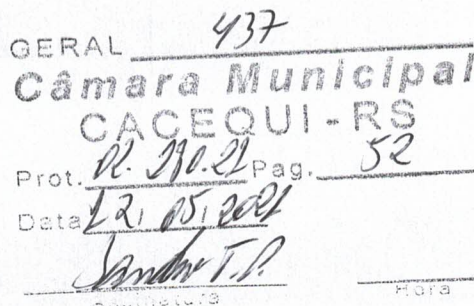 GERAL 437
Câmara Municipal
CACEQUI - RS
Prot. 02.290.21 Pag. 52
Data 12, 05, 2021
Sandro T.P.
Assinatura Hora